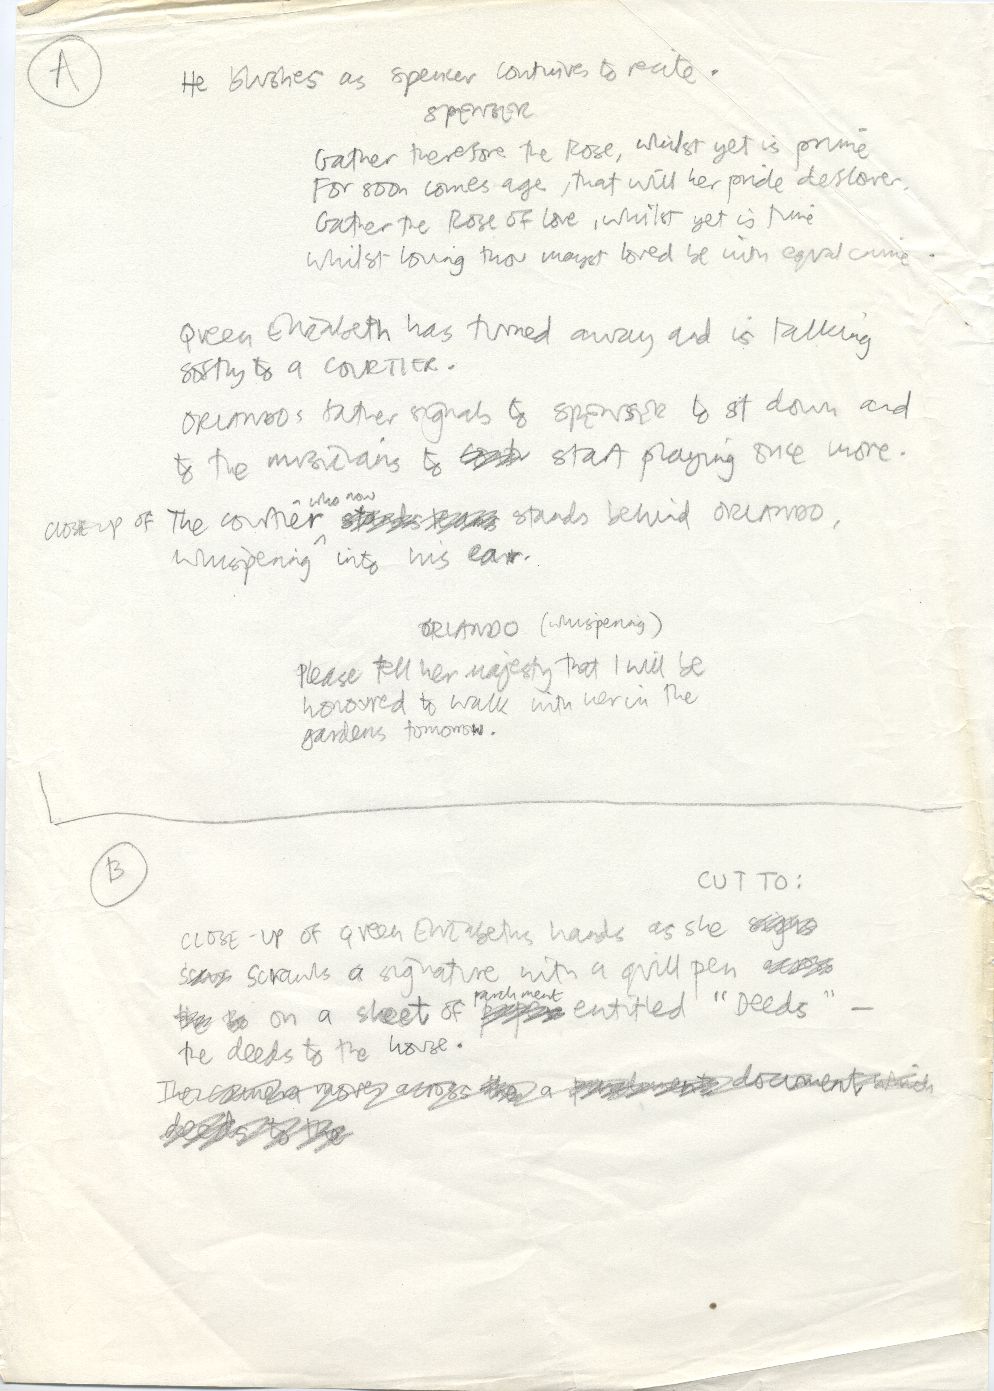 A
He blushes as spencer continues to recite.
SPENSER
Gather therefore the Rose, whilst yet is prime
For soon comes age, that will her pride deflower.
Gather the Rose of Love, whilst yet is time
Whilst loving thou mayst loved be with equal crime.
Queen Elizabeth has turned away and is talking
softly to a COURTIER.
ORLANDOs father signals to SPENSER to sit down and
to the musicians to start playing once more.
who now
CLOSE-UP OF The courtier stands behind ORLANDO,
whispering into his ear.
ORLANDO (whispering)
Please tell her majesty that I will be
honoured to walk with her in the
gardens tomorrow.
B
CUT TO:
CLOSE-UP OF Queen Elizabeths hands as she signs
scrawls a signature with a quill pen across
parchment
on a sheet of paper entitled "Deeds" –
the deeds to the house.
The camera moves across the a parchment document which
deeds to the